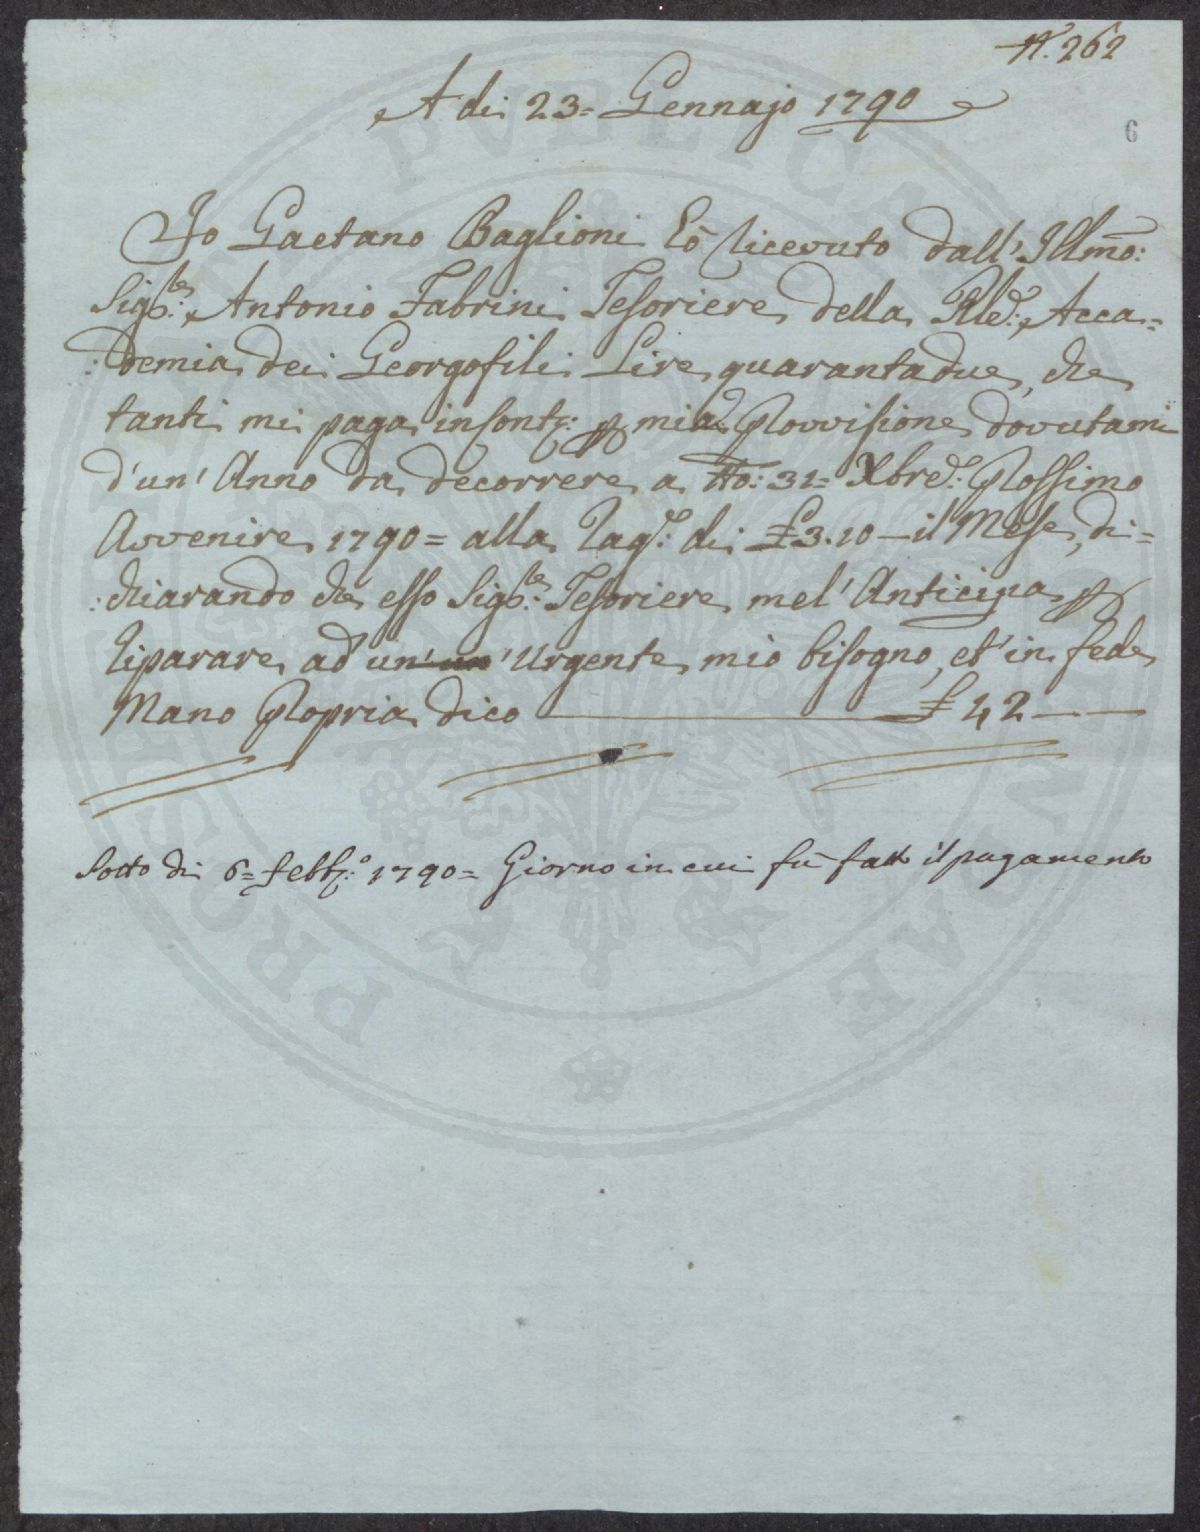 N. 262
A di 23= Gennajo 1790
6
Io Gaetano Baglioni hò ricevuto dall' Illmo:
Sigre: Antonio Fabrini Tesoriere della Rle: Acca=
:demia dei Georgofili Lire quarantadue, che
tanti mi paga in conto: p mia Provvisione dovutami
d'un' Anno da decorrere a tto: 31= Xbre: Prossimo
Avvenire 1790= alla Rag: di £3.10 - il Mese, di=
:chiarando che esso Sigre: Tesoriere mel' Anticipa p
riparare ad un' Urgente mio bisogno, et in fede
Mano Propria dico £ 42 - -
Sotto di 6= Febb: 1790= Giorno in cui fù fatto il pagamento
PVBLICAE
PROSPERITATI